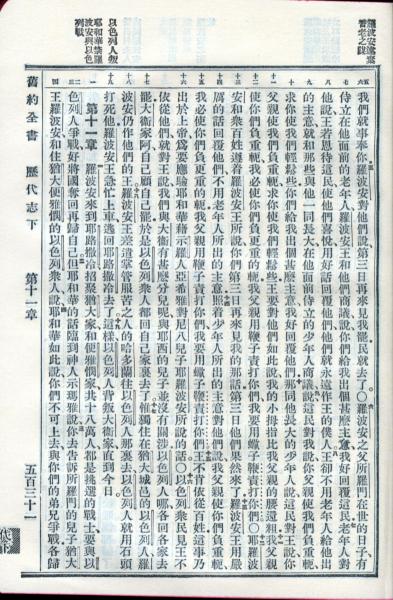 以色列人叛
耶和華禁羅
波安與以色
列戰
我們就事奉你羅波安對他們說第三日再來見我罷民就去了〇羅波安之父所羅門在世的日子有
侍立在他面前的老年人羅波安王和他們商議說你們給我出個甚麼主意我好回覆這民老年人對
他說王若恩待這民使他們喜悅用好話回覆他們他們就永遠作王的僕人王卻不用老年人給他出
的主意就和那些與他一同長大在他面前侍立的少年人商議說這民對我說你父親使我們負重軛
求你使我們輕鬆些你們給我出個甚麼主意我好回覆他們那同他長大的少年人說這民對王說你
父親使我們負重軛求你使我們輕鬆些王要對他們如此說我的小拇指比我父親的腰還粗我父親
使你們負重軛我必使你們負更重的軛我父親用鞭子責打你們我要用蠍子鞭責打你們〇耶羅波
安和衆百姓遵着羅波安王所說你們第三日再來見我的那話第三日他們果然來了羅波安王用嚴
厲的話回覆他們不用老年人所出的主意照着少年人所出的主意對他們說我父親使你們負重軛
我必使你們負更重的軛我父親用鞭子責打你們我要用蠍子鞭責打你們王不肯依從百姓這事乃
出於上帝為要應驗耶和華藉示羅人亞希雅對尼八兒子耶羅波安所說的話〇以色列衆民見王不
依從他們就對王說我們與大衛有甚麼分兒呢與耶西的兒子並沒有關涉以色列人哪各回各家去
罷大衛家阿自己顧自己罷於是以色列人都回自己家裏去了惟獨住在猶大城邑的以色列人羅
波安仍作他們的王羅波安王差遣掌管服苦之人的哈多蘭往以色列人那裏去以色列人就用石頭
打死他羅波安王急忙上車逃回耶路撒冷去了這樣以色列人背叛大衛家直到今日
第十一章 羅波安來到耶路撒冷招聚猶大家和便雅憫家共十八萬人都是挑選的戰士要與以
色列人爭戰好將國奪回再歸自己但耶和華的話臨到神人示瑪雅說你去告訴所羅門的兒子猶大
王羅波安和住猶大便雅憫的以色列衆人說耶和華如此說你們不可上去與你們的弟兄爭戰各歸
舊約全書 歷代志下 第十一章 五百三十一